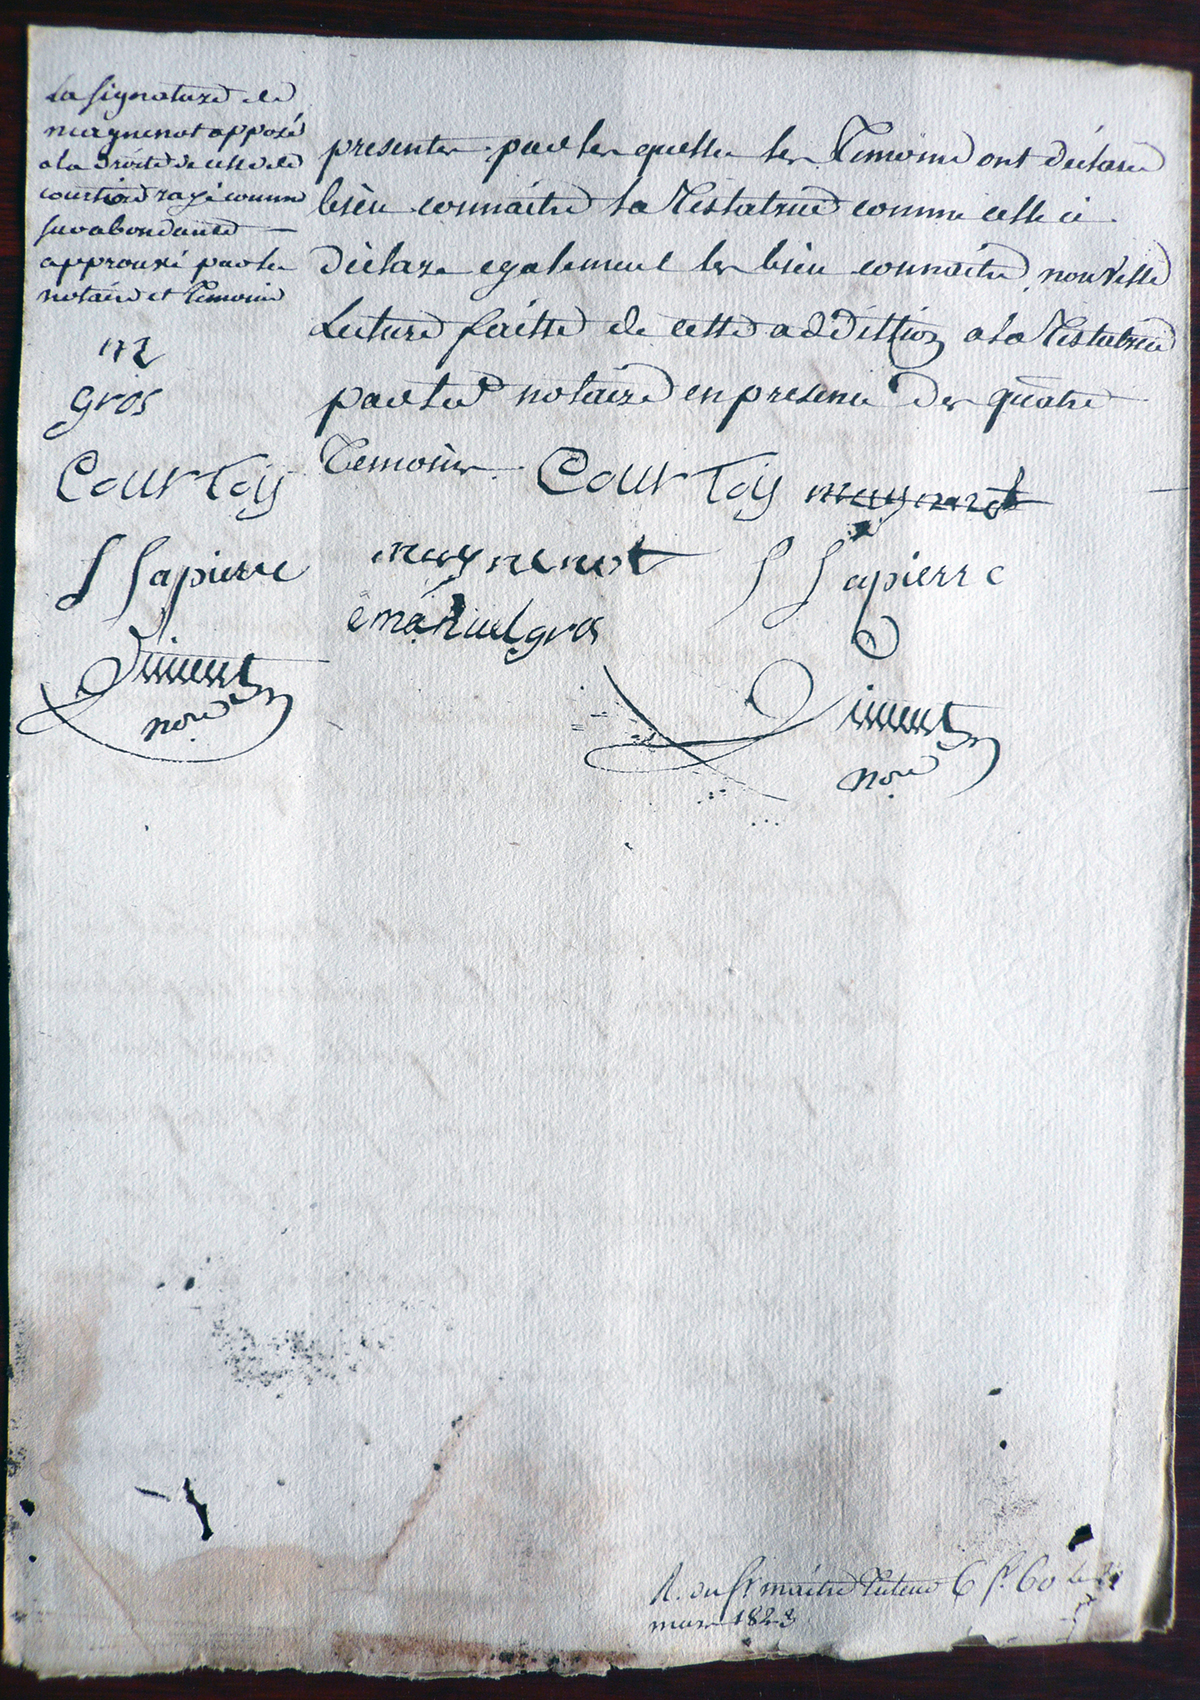 La signature de
magnenot apposé
a la droite de celle de
courtois rayé comme
surabondante
approuvé par les
notaire et Temoins
m
gros
Courtois
S Lapierre
Vincent
nore
presentes par les quelles les Temoins ont déclaré
bien connaitre la Testatrice comme celle ci
déclare egalement les bien connaitre, nouvelle
Lecture faitte de cette addittion a la Testatrice
par led notaire en presence des quatre
Temoins. Courtois magnenot
magnenot S Lapierre
emanuel gros
Vincent
nore
R. du Sr maitre Tuteur 6 f. 60
mars 1823